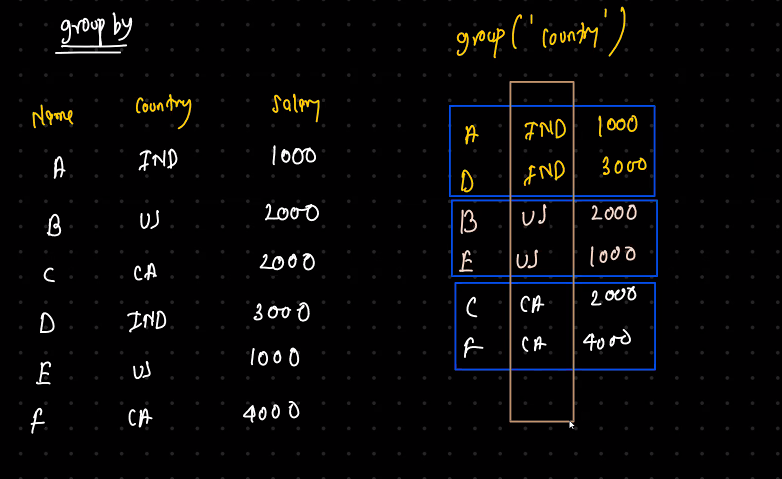 group by
group('country')
Name Country Salary
A IND 1000
B US 2000
C CA 2000
D IND 3000
E US 1000
F CA 4000
A IND 1000
D IND 3000
B US 2000
E US 1000
C CA 2000
F CA 4000